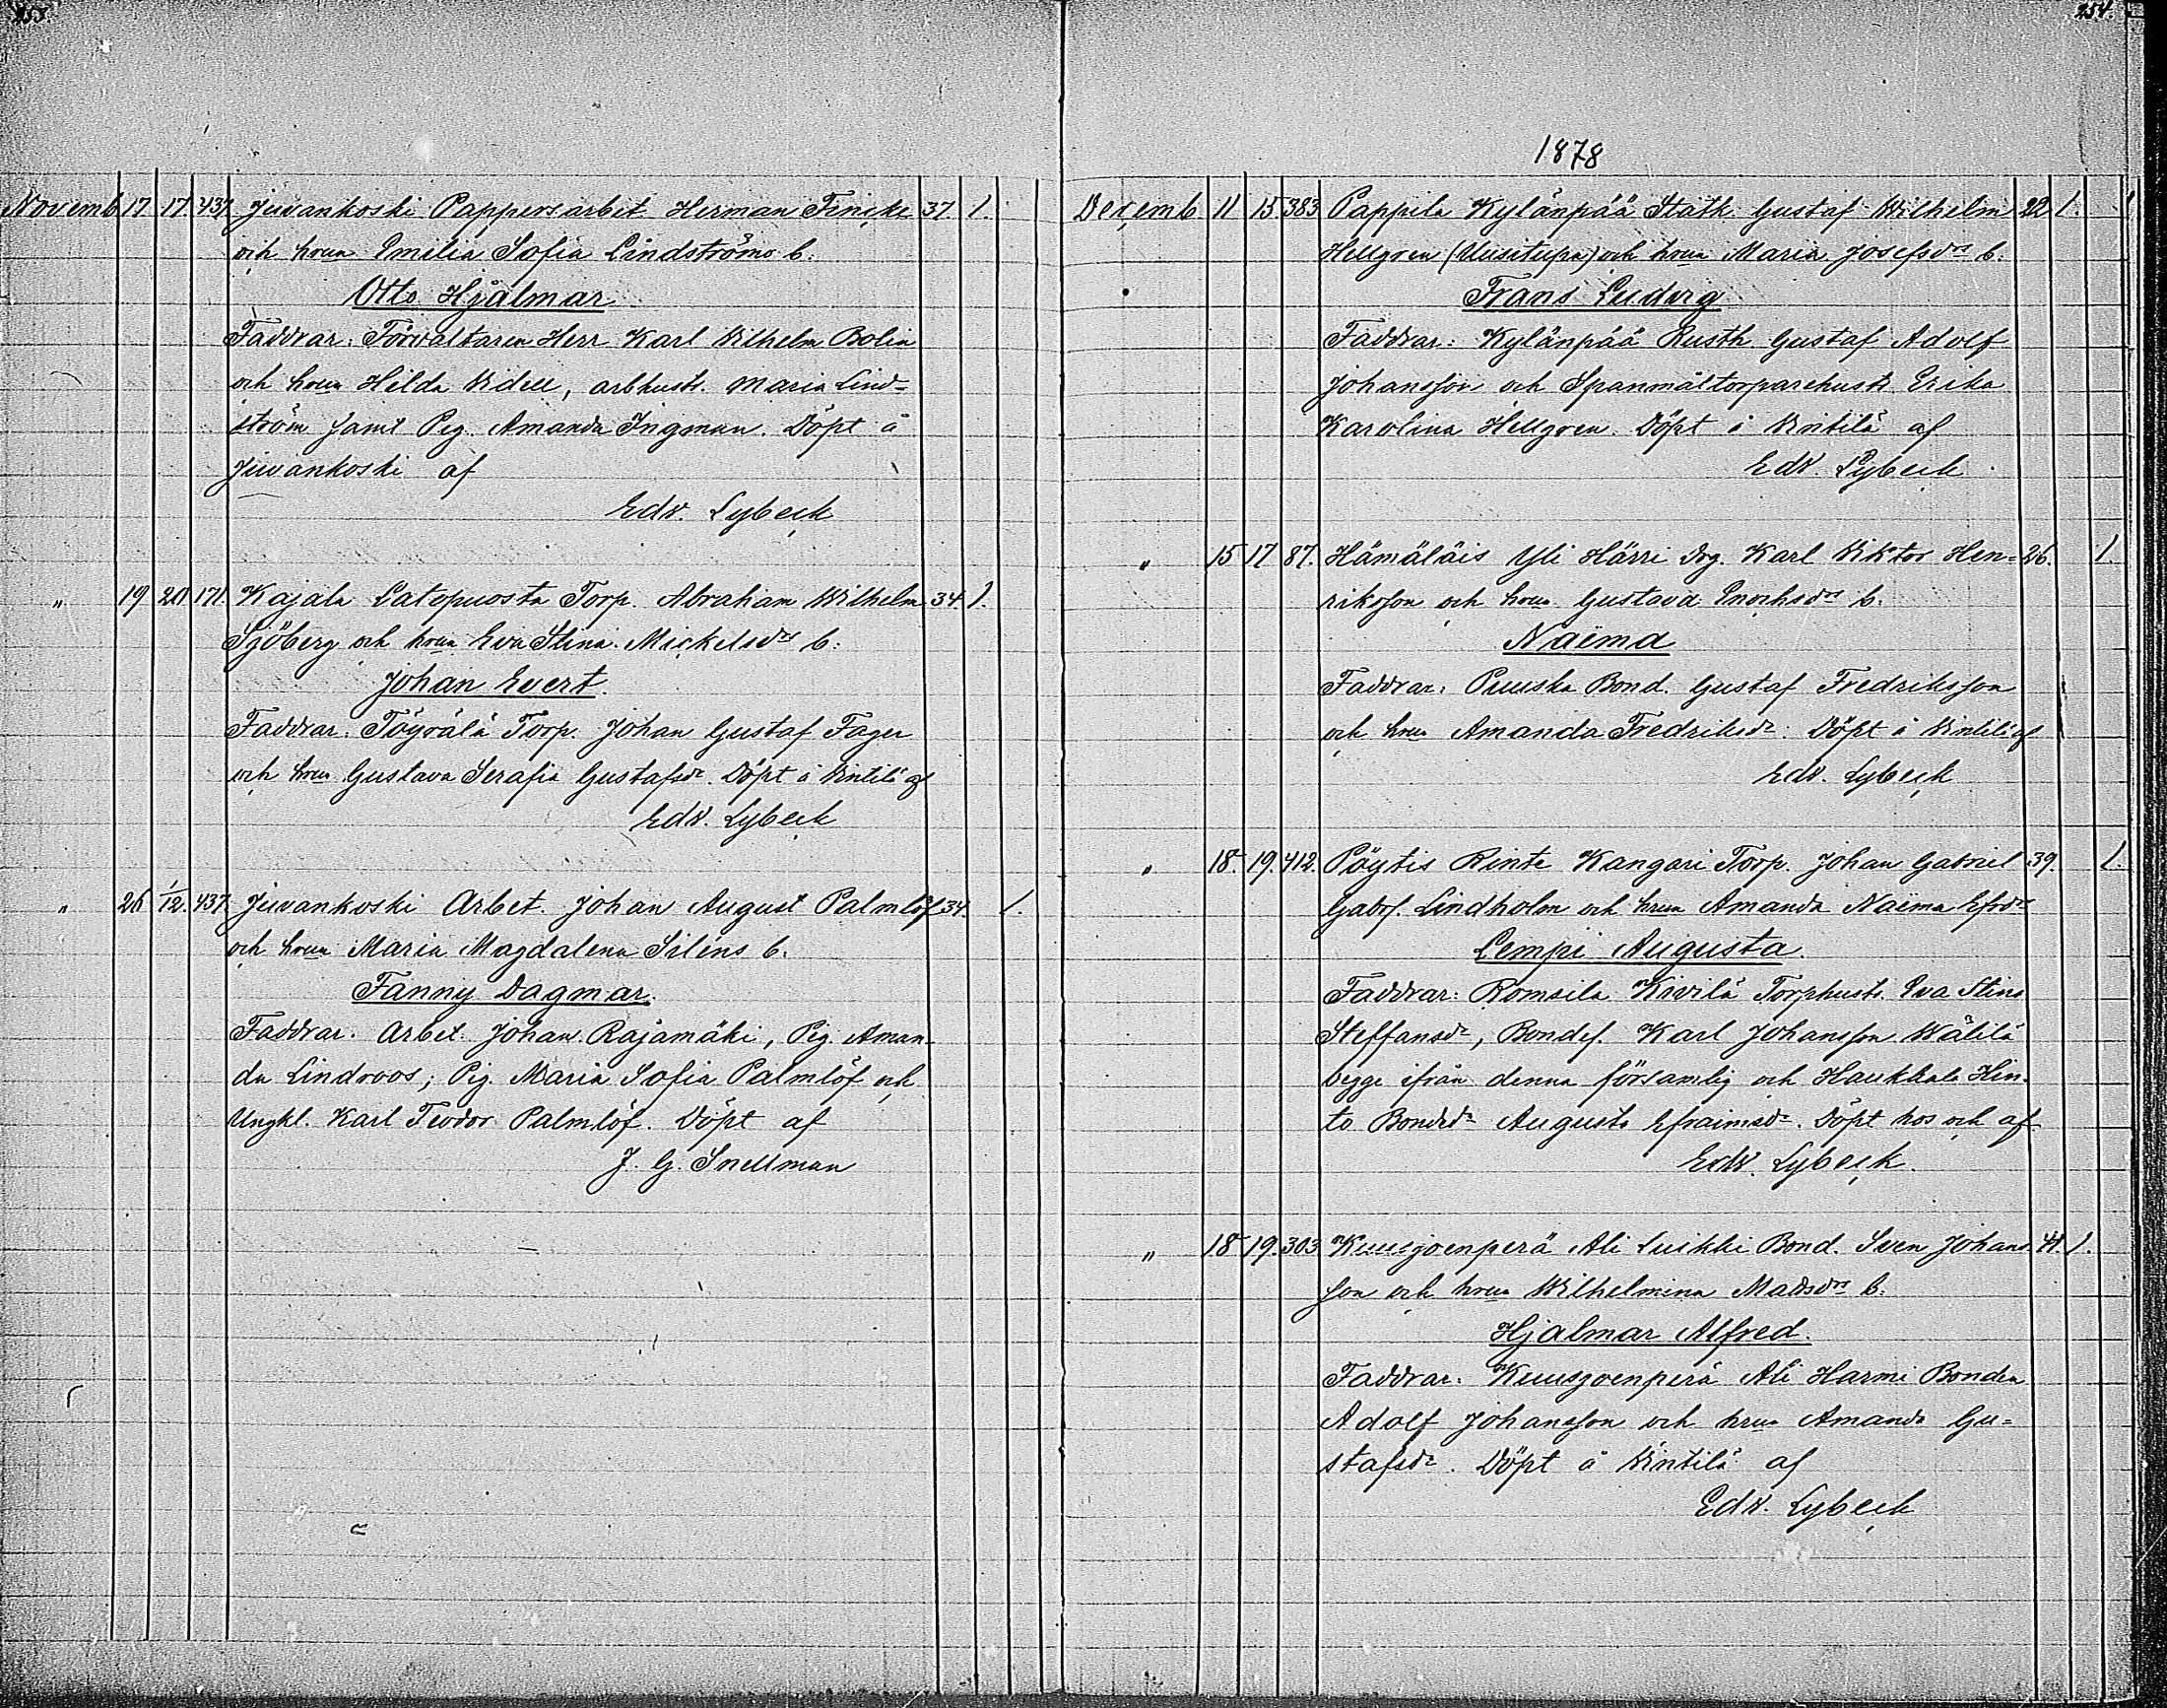 253.
Novemb 17 17. 437. Juvankoski Pappersarbet. Herman Fincke 37. 1.
och hrua Emilia Sofia Lindströms b:
Otto Hjalmar
Faddrar: Förvaltaren Herr Karl Wilhelm Bolin
och hrua Hilda Widell, arbhustr. Maria Lind=
ström samt Pig. Amanda Ingman. Döpt å
Juvankoski af
Edv. Lybeck
" 19 20 171. Kajala Latopuosta Torp. Abraham Wilhelm 34. 1.
Sjöberg och hrua Eva Stina Mickelsdrs b:
Johan Evert.
Faddrar: Töyrälä Torp. Johan Gustaf Fager
och hrua Gustava Serafia Gustafsdr. Döpt å Wintilä af
Edv. Lybeck
" 26 1/12. 437. Juvankoski Arbet. Johan August Palmlöf 34. 1.
och hrua Maria Magdalena Siléns b.
Fanny Dagmar.
Faddrar. Arbet. Johan Rajamäki, Pig. Aman=
da Lindroos; Pig. Maria Sofia Palmlöf och
Ungkl. Karl Teodor Palmlöf. Döpt af
J. G. Snellman
254.
1878
Decemb 11 15 383. Pappila Kylänpää Statk. Gustaf Wilhelm 22 1.
Hellgren (Uusitupa) och hrua Maria Josefsdrs b:
Frans Ludvig
Faddrar: Kylänpää Rusth. Gustaf Adolf
Johansson och Spanmåltorparehustr. Erika
Karolina Hellgren. Döpt å Wintilä af
Edv. Lybeck
" 15 17 87. Hämäläis Yli Härri Drg. Karl Wiktor Hen= 26. 1.
riksson och hrua Gustava Enochsdrs b:
Naëma
Faddrar: Puuska Bond. Gustaf Fredriksson
och hrua Amanda Fredriksdr: Döpt å Wintilä af
Edv. Lybeck
" 18. 19. 412. Pöytis Rinte Kangari Torp. Johan Gabriel 39. 1.
Gabrs. Lindholm och hrua Amanda Naëma Efrdrs
Lempi Augusta.
Faddrar: Romsila Kivilä Torphustr. Eva Stina
Steffansdr, Bondes. Karl Johansson Wälilä
begge ifrån denna församlig och Haukkala Hin=
to Bondedr Augusta Efraimsdr. Döpt hos och af
Edv. Lybeck.
" 18 19. 303 Kuusjoenperä Ali Luikki Bond. Sven Johans 41. 1.
son och hrua Wilhelmina Madsdrs b:
Hjalmar Alfred.
Faddrar: Kuusjoenperä Ali Harmi Bonden
Adolf Johansson och hrua Amanda Gu=
stafsdr. Döpt å Wintilä af
Edv. Lybeck